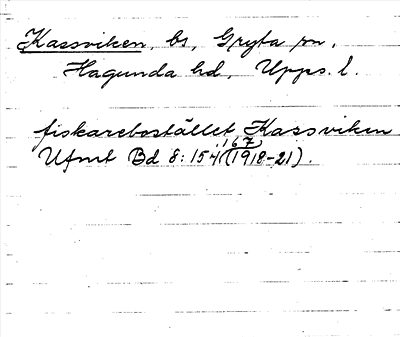 Kassviken, bs, Gryta sn,
Hagunda hd, Upps. l.
fiskarebostället Kassviken
167
Ufmt Bd 8:154 (1918-21).